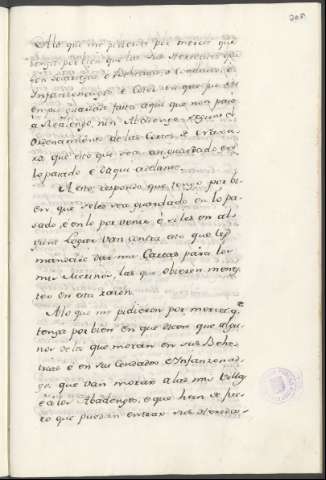 208
Alo que me pidieron por merced que
tenga por bien que las sus Heredades que
son
Infantazgos è
en que guardado fasta aqui que non paso
a Abadengo, nin Abadengo segun el
Ordenamiento de las Cortes de
ra que esto que sea asi guardado en
lo pasado è daqui adelante.
A esto respondo que tengo por bi
en que se les sea guardado en lo pa
sado, è en lo por venir, è si les en al
gun Logar van contra esto que les
mandare dar mis Cartas para los
mis Merinos, las que obieren menes
ter en esta razon.
Alo que me pidieron por merced q.e
tenga por bien en que dicen que algu
nos de los que moran en sus Behe
trias è en sus Condados è Infantazgos
que van morar a las mis Villas
è a los Abadengos, è que han de fue
ro que puedan entrar sus Hereda